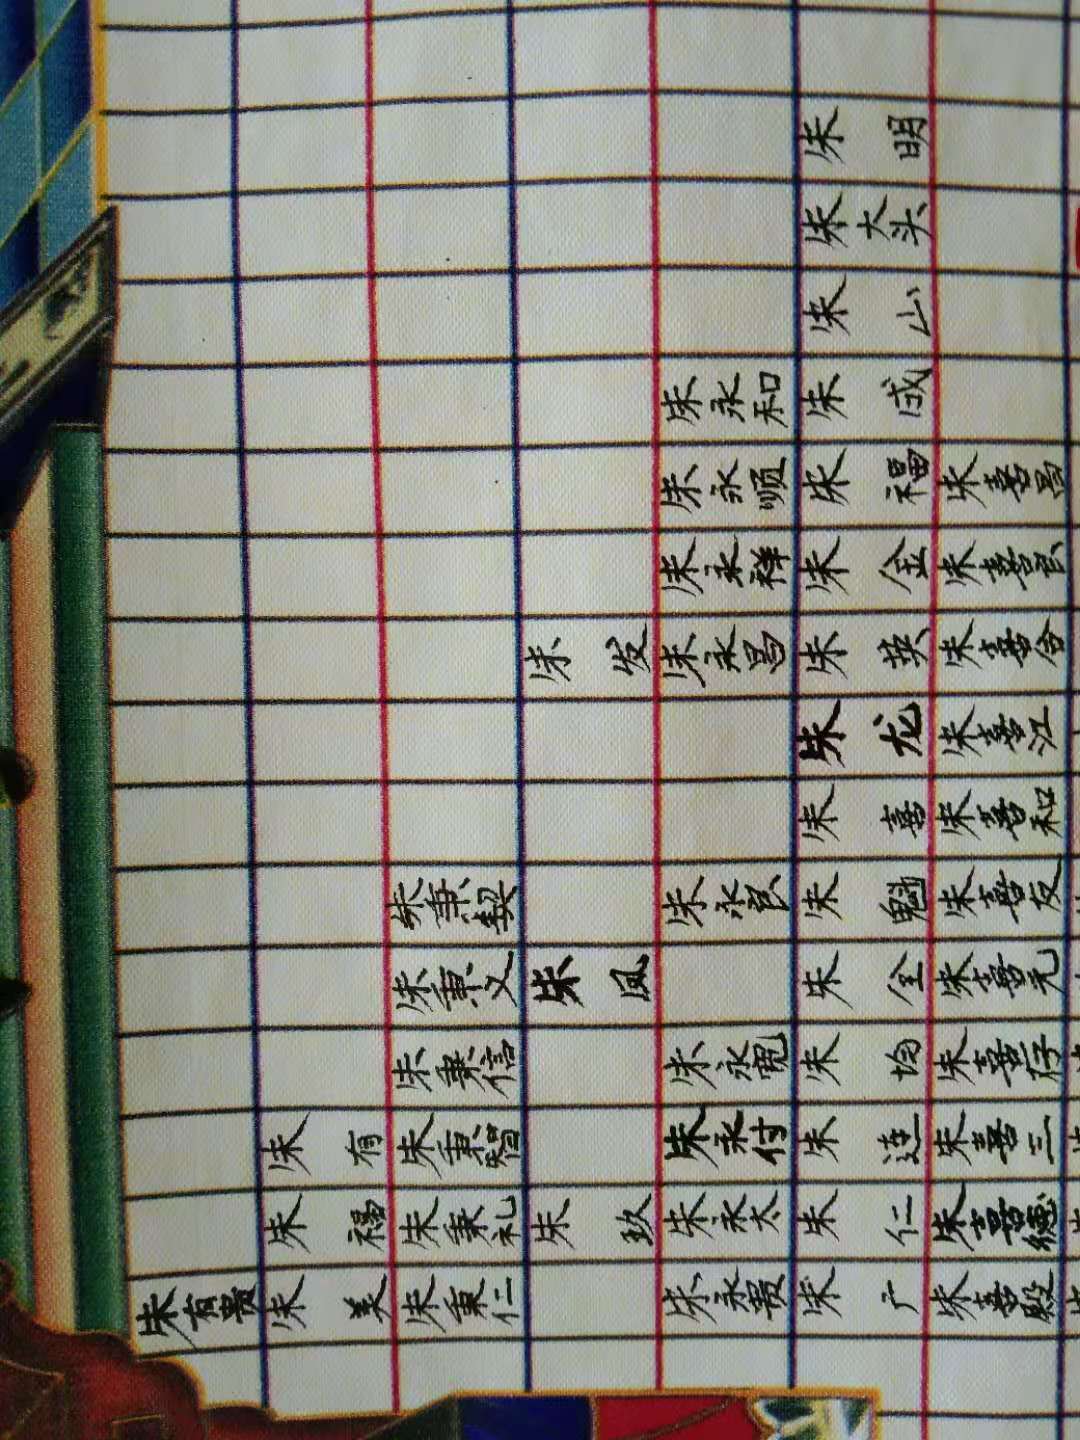 朱有贵
朱美
朱福
朱有
朱秉仁
朱秉礼
朱秉智
朱秉信
朱秉义
朱秉
朱玖
朱凤
朱发
朱永贵
朱永太
朱永付
朱永宽
朱永良
朱永昌
朱永祥
朱永顺
朱永和
朱广
朱仁
朱连
朱均
朱全
朱魁
朱喜
朱龙
朱英
朱金
朱福
朱成
朱山
朱大头
朱明
朱喜殿
朱喜德
朱喜三
朱喜仔
朱喜元
朱喜友
朱喜和
朱喜江
朱喜合
朱喜
朱喜昌